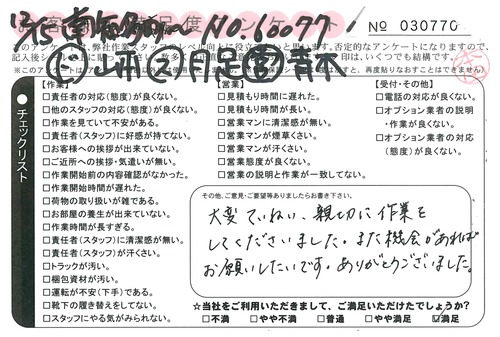 No.60077
№ 030770
チェックリスト
【作業】
□責任者の対応(態度)が良くない。
□他のスタッフの対応(態度)が良くない。
□作業を見ていて不安がある。
□責任者(スタッフ)に好感が持てない。
□お客様への挨拶が出来ていない。
□ご近所への挨拶・気遣いが無い。
□作業開始前の内容確認がなかった。
□作業開始時間が遅れた。
□荷物の取り扱いが雑である。
□お部屋の養生が出来ていない。
□作業時間が長すぎる。
□責任者(スタッフ)に清潔感が無い。
□責任者(スタッフ)が汗くさい。
□トラックが汚い。
□梱包資材が汚い。
□運転が不安(下手)である。
□靴下の履き替えをしてない。
□スタッフにやる気がみられない。
【営業】
□見積もり時間に遅れた。
□見積もり時間が長い。
□営業マンに清潔感が無い。
□営業マンが煙草くさい。
□営業マンが汗くさい。
□営業態度が良くない。
□営業の説明と作業が一致してない。
【受付・その他】
□電話の対応が良くない。
□オプション業者の説明
・作業が良くない。
□オプション業者の対応
(態度)が良くない。
その他、ご意見・ご要望等ありましたらお書き下さい。
大変ていねい、親切に作業を
してくださいました。また機会があれば
お願いしたいです。ありがとうございました。
☆当社をご利用いただきまして、ご満足いただけたでしょうか?
□不満 □やや不満 □普通 □やや満足 ☑満足